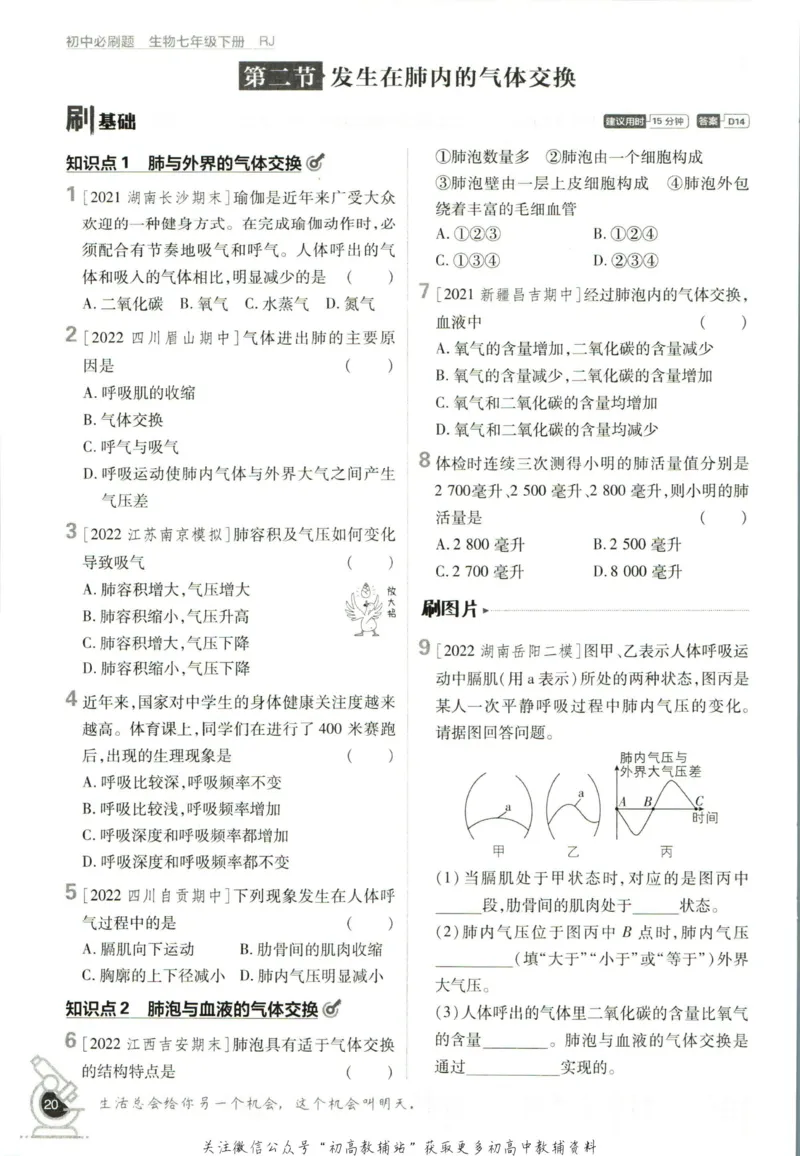 初中必刷题 生物七年级下册 RJ
第二节 发生在肺内的气体交换
刷基础
建议用时 15分钟 答案 D14
知识点1 肺与外界的气体交换
1 [2021 湖南长沙期末]瑜伽是近年来广受大众
欢迎的一种健身方式。在完成瑜伽动作时,必
须配合有节奏地吸气和呼气。人体呼出的气
体和吸入的气体相比,明显减少的是 ( )
A. 二氧化碳 B. 氧气 C. 水蒸气 D. 氮气
2 [2022 四川眉山期中]气体进出肺的主要原
因是 ( )
A. 呼吸肌的收缩
B. 气体交换
C. 呼气与吸气
D. 呼吸运动使肺内气体与外界大气之间产生
气压差
3 [2022 江苏南京模拟]肺容积及气压如何变化
导致吸气 ( )
A. 肺容积增大,气压增大
B. 肺容积缩小,气压升高
C. 肺容积增大,气压下降
D. 肺容积缩小,气压下降
放大招
4 近年来,国家对中学生的身体健康关注度越来
越高。体育课上,同学们在进行了 400 米赛跑
后,出现的生理现象是 ( )
A. 呼吸比较深,呼吸频率不变
B. 呼吸比较浅,呼吸频率增加
C. 呼吸深度和呼吸频率都增加
D. 呼吸深度和呼吸频率都不变
5 [2022 四川自贡期中]下列现象发生在人体呼
气过程中的是 ( )
A. 膈肌向下运动 B. 肋骨间的肌肉收缩
C. 胸廓的上下径减小 D. 肺内气压明显减小
知识点2 肺泡与血液的气体交换
6 [2022 江西吉安期末]肺泡具有适于气体交换
的结构特点是 ( )
①肺泡数量多 ②肺泡由一个细胞构成
③肺泡壁由一层上皮细胞构成 ④肺泡外包
绕着丰富的毛细血管
A. ①②③ B. ①②④
C. ①③④ D. ②③④
7 [2021 新疆昌吉期中]经过肺泡内的气体交换,
血液中 ( )
A. 氧气的含量增加,二氧化碳的含量减少
B. 氧气的含量减少,二氧化碳的含量增加
C. 氧气和二氧化碳的含量均增加
D. 氧气和二氧化碳的含量均减少
8 体检时连续三次测得小明的肺活量值分别是
2 700毫升、2 500 毫升、2 800 毫升,则小明的肺
活量是 ( )
A. 2 800 毫升 B. 2 500 毫升
C. 2 700 毫升 D. 8 000 毫升
刷图片
9 [2022 湖南岳阳二模]图甲、乙表示人体呼吸运
动中膈肌(用 a 表示)所处的两种状态,图丙是
某人一次平静呼吸过程中肺内气压的变化。
请据图回答问题。
肺内气压与
外界大气压差
a a A B C
时间
甲 乙 丙
(1)当膈肌处于甲状态时,对应的是图丙中
______段,肋骨间的肌肉处于______状态。
(2)肺内气压位于图丙中 B 点时,肺内气压
__________(填“大于”“小于”或“等于”)外界
大气压。
(3)人体呼出的气体里二氧化碳的含量比氧气
的含量________。肺泡与血液的气体交换是
通过____________实现的。
20 生活总会给你另一个机会,这个机会叫明天。
关注微信公众号“初高教辅站”获取更多初高中教辅资料